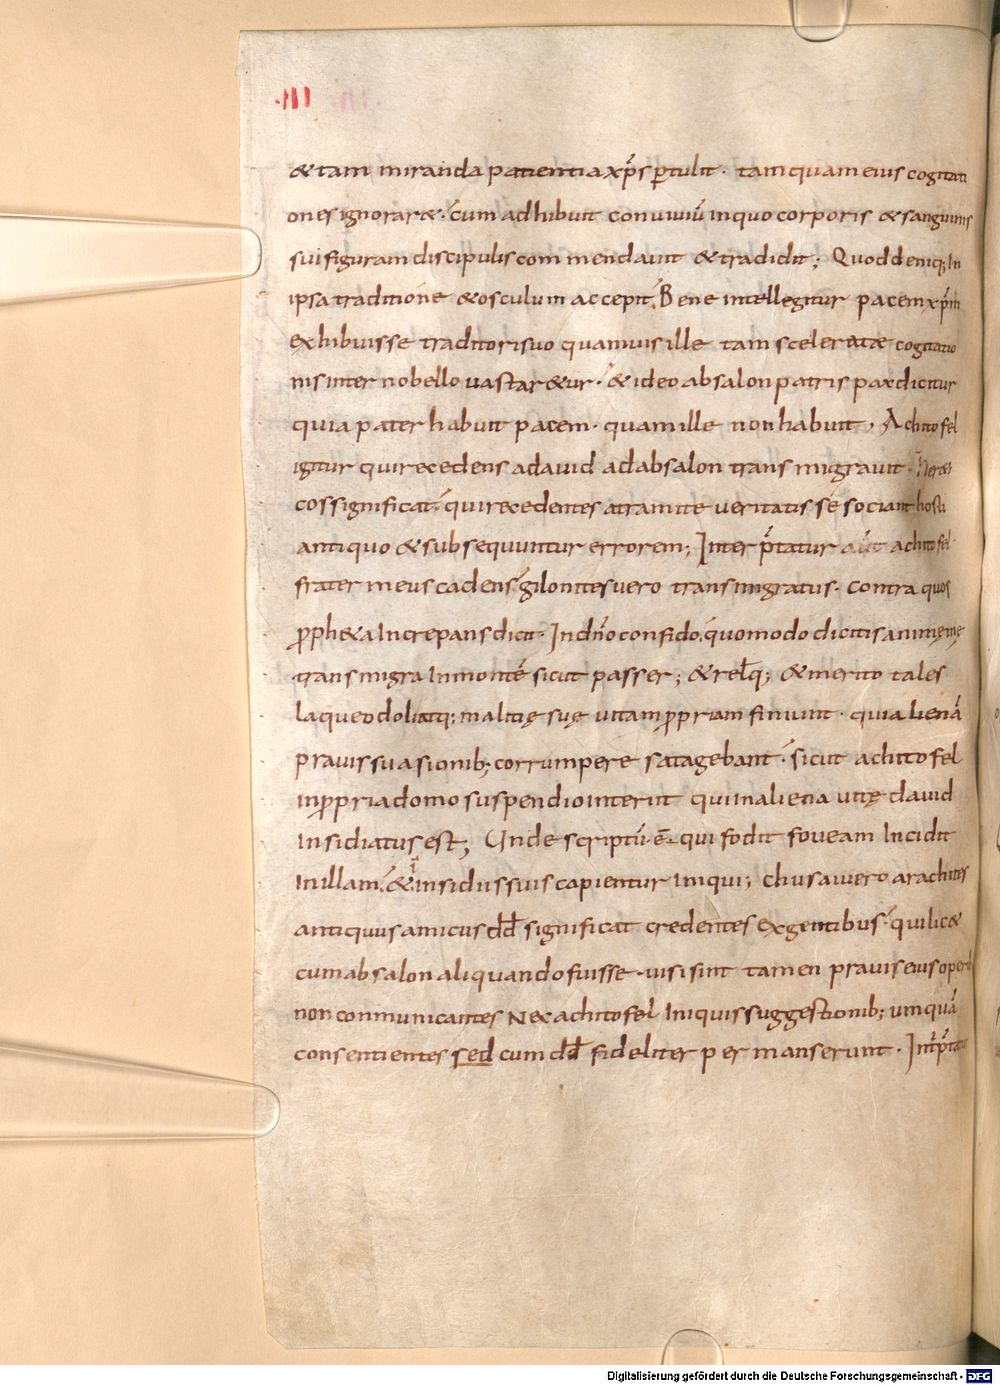 ·III·
& tam miranda patientia xp̄s ꝑtulit · tamquam eius cogitati
ones ignorar& · cum adhibuit conuiuiū in quo corporis & sanguinis
sui figuram discipulis commendauit & tradidit; Quod deniq; In
ipsa traditione & osculum accepit. Bene intellegitur pacem xp̄m
exhibuisse traditori suo quamuis ille tam sceleratae cogitatio
nis interno bello uastar&ur · & ideo absalon patris pax dicitur
quia pater habuit pacem · quam ille non habuit · Achitofel
igitur qui recedens a dauid ad absalon transmigrauit · Her&i
cos significat · qui recedentes a tramite ueritatis se sociant hosti
antiquo & subsequuntur errorem; Interp̄tatur aūt achitofel ·
frater meus cadens · gilonites uero transmigratus · contra quos
ꝓph&a Increpans dicit · In dn̄o confido. quomodo dicitis animę mę
transmigra In montē sicut passer; & relq̄; & merito tales
laqueo doli atq; malitię suę uitam ꝓpriam finiunt · quia alienā
prauis suasionib; corrumpere satagebant · sicut achitofel
in ꝓpria domo suspendio interiit qui In aliena uitę dauid
Insidiatus est; Unde scriptū ē · qui fodit foueam Incidit
In illam · & in insidiis suis capientur iniqui; Chusai uero arachites
antiquus amicus dd̄ significat credentes ex gentibus · qui lic&
cum absalon aliquando fuisse · uisi sint tamen prauis eius operib
non communicantes Nec achitofel Iniquis suggestionib; umquā
consentientes sed cum dd̄ fideliter permanserunt · Int̄p̄tatur
Digitalisierung gefördert durch die Deutsche Forschungsgemeinschaft - DFG